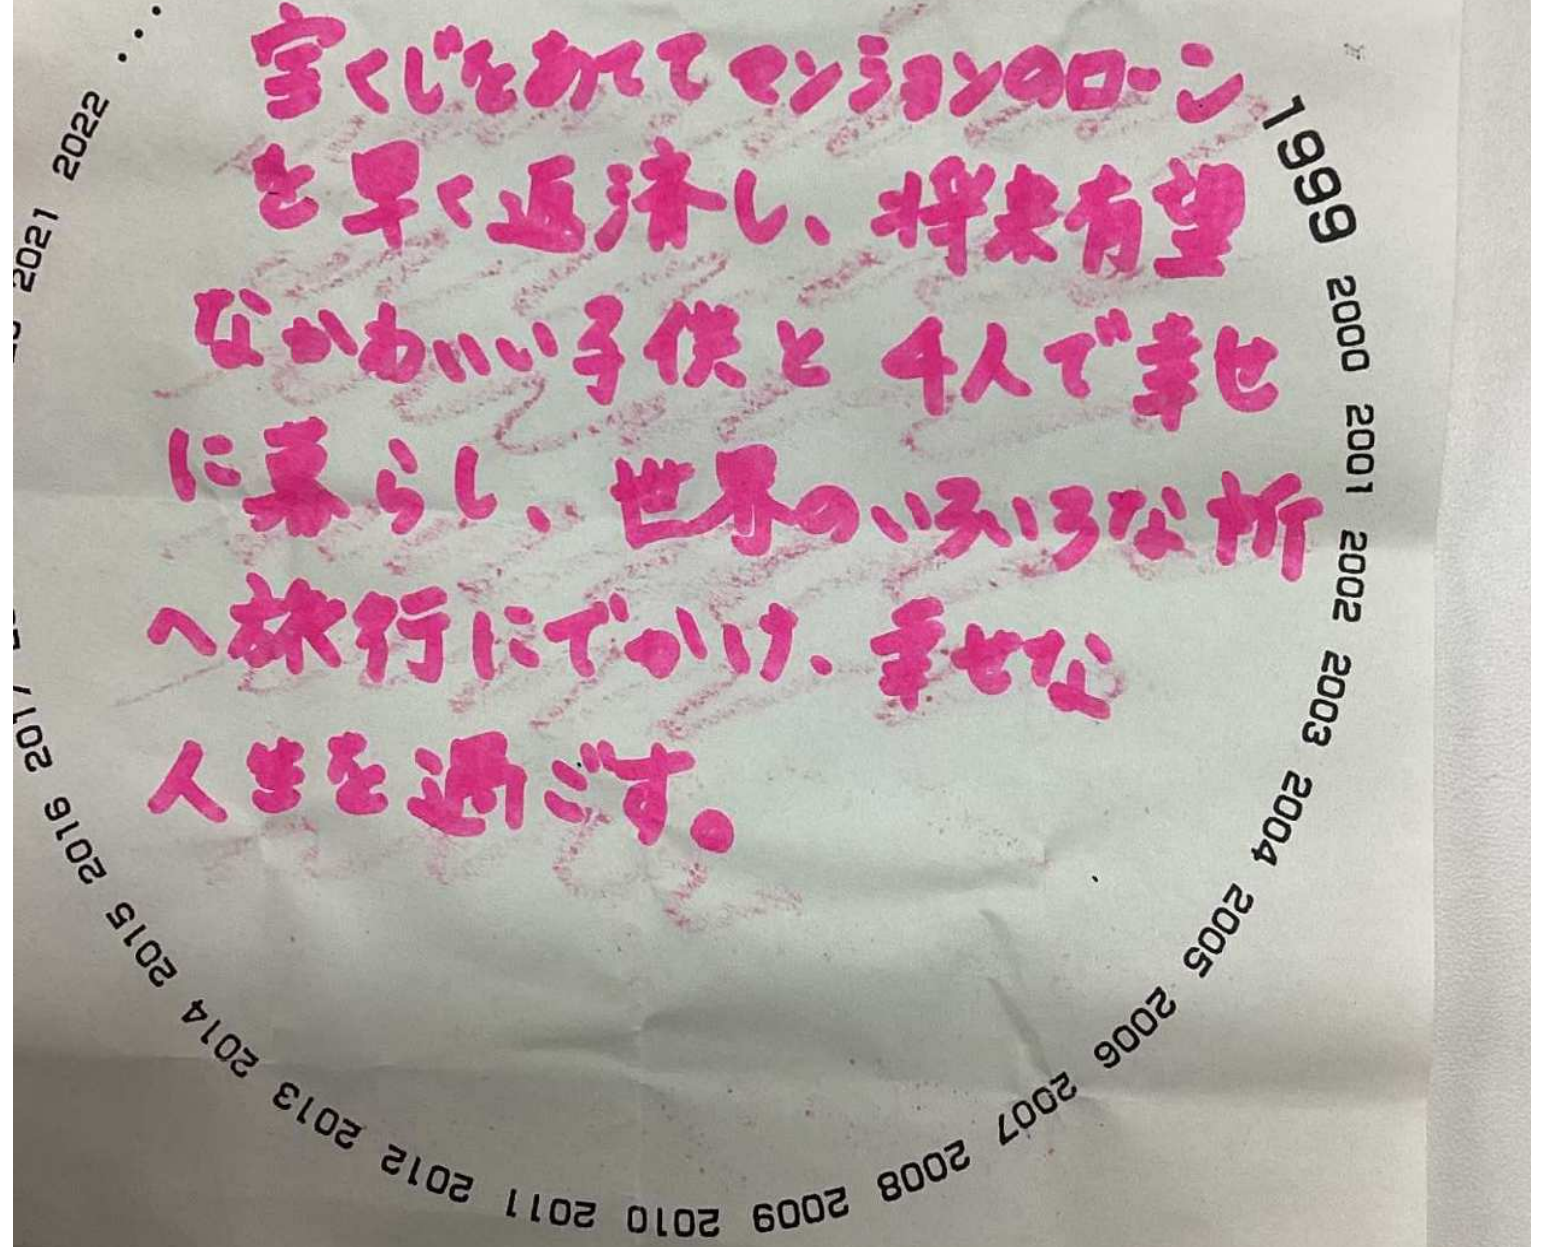 宝くじをあててマンションのローン
を早く返済し、将来有望
なかわいい子供と4人で幸せ
に暮らし、世界のいろいろな所
へ旅行にでかけ、幸せな
人生を過ごす。
1999 2000 2001 2002 2003 2004 2005 2006 2007 2008 2009 2010 2011 2012 2013 2014 2015 2016 2017
2021 2022 ...